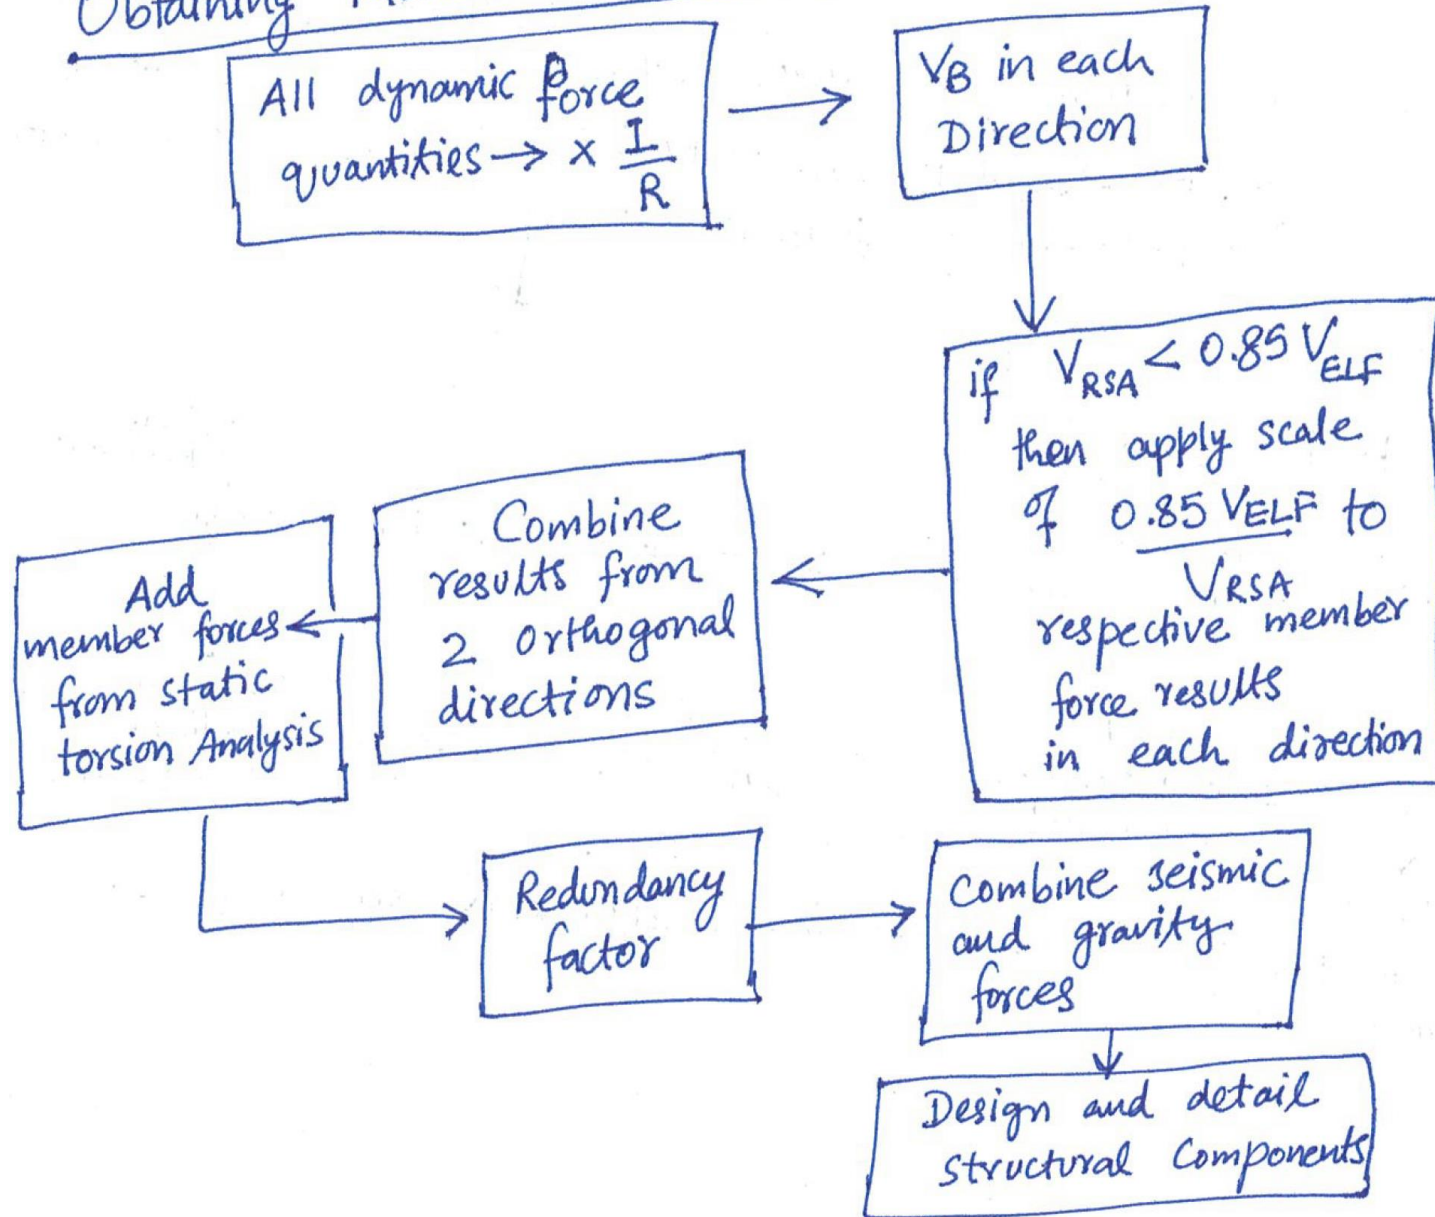 Obtaining
All dynamic force
quantities → × I/R
VB in each
Direction
if VRSA < 0.85 VELF
then apply scale
of 0.85 VELF to
VRSA
respective member
force results
in each direction
Combine
results from
2 orthogonal
directions
Add
member forces
from static
torsion Analysis
Redundancy
factor
Combine seismic
and gravity
forces
Design and detail
structural Components